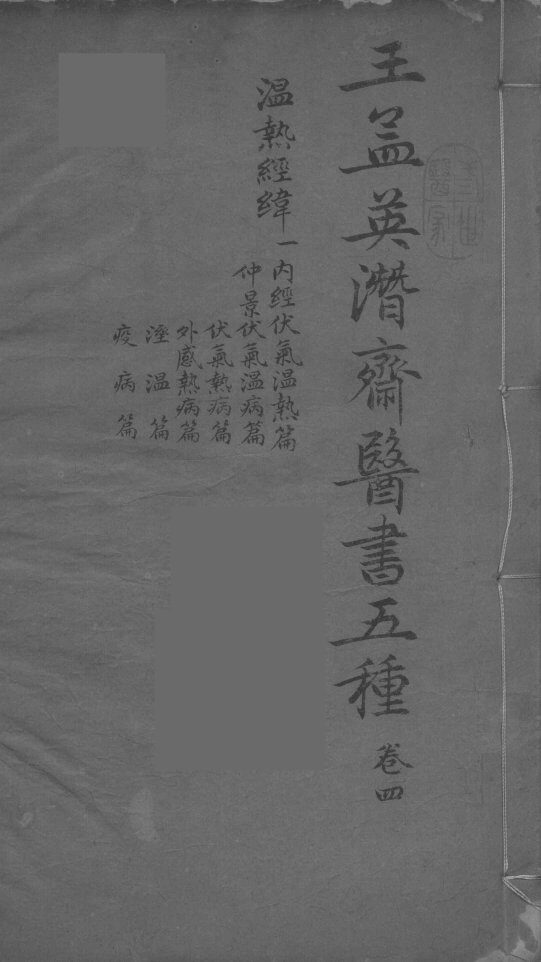 王孟英潛齋醫書五種 卷四
溫熱經緯一
內經伏氣溫熱篇
仲景伏氣溫病篇
伏氣熱病篇
外感熱病篇
溼溫篇
疫病篇